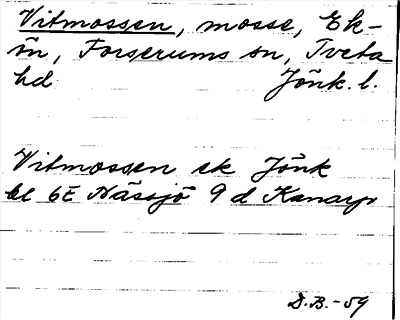 Vitmossen, mosse, Ek-
ön, Forserums sn, Tveta
hd Jönk. l.
Vitmossen ek Jönk
bl 6E Nässjö 9 d Kanarp
D.B. -59